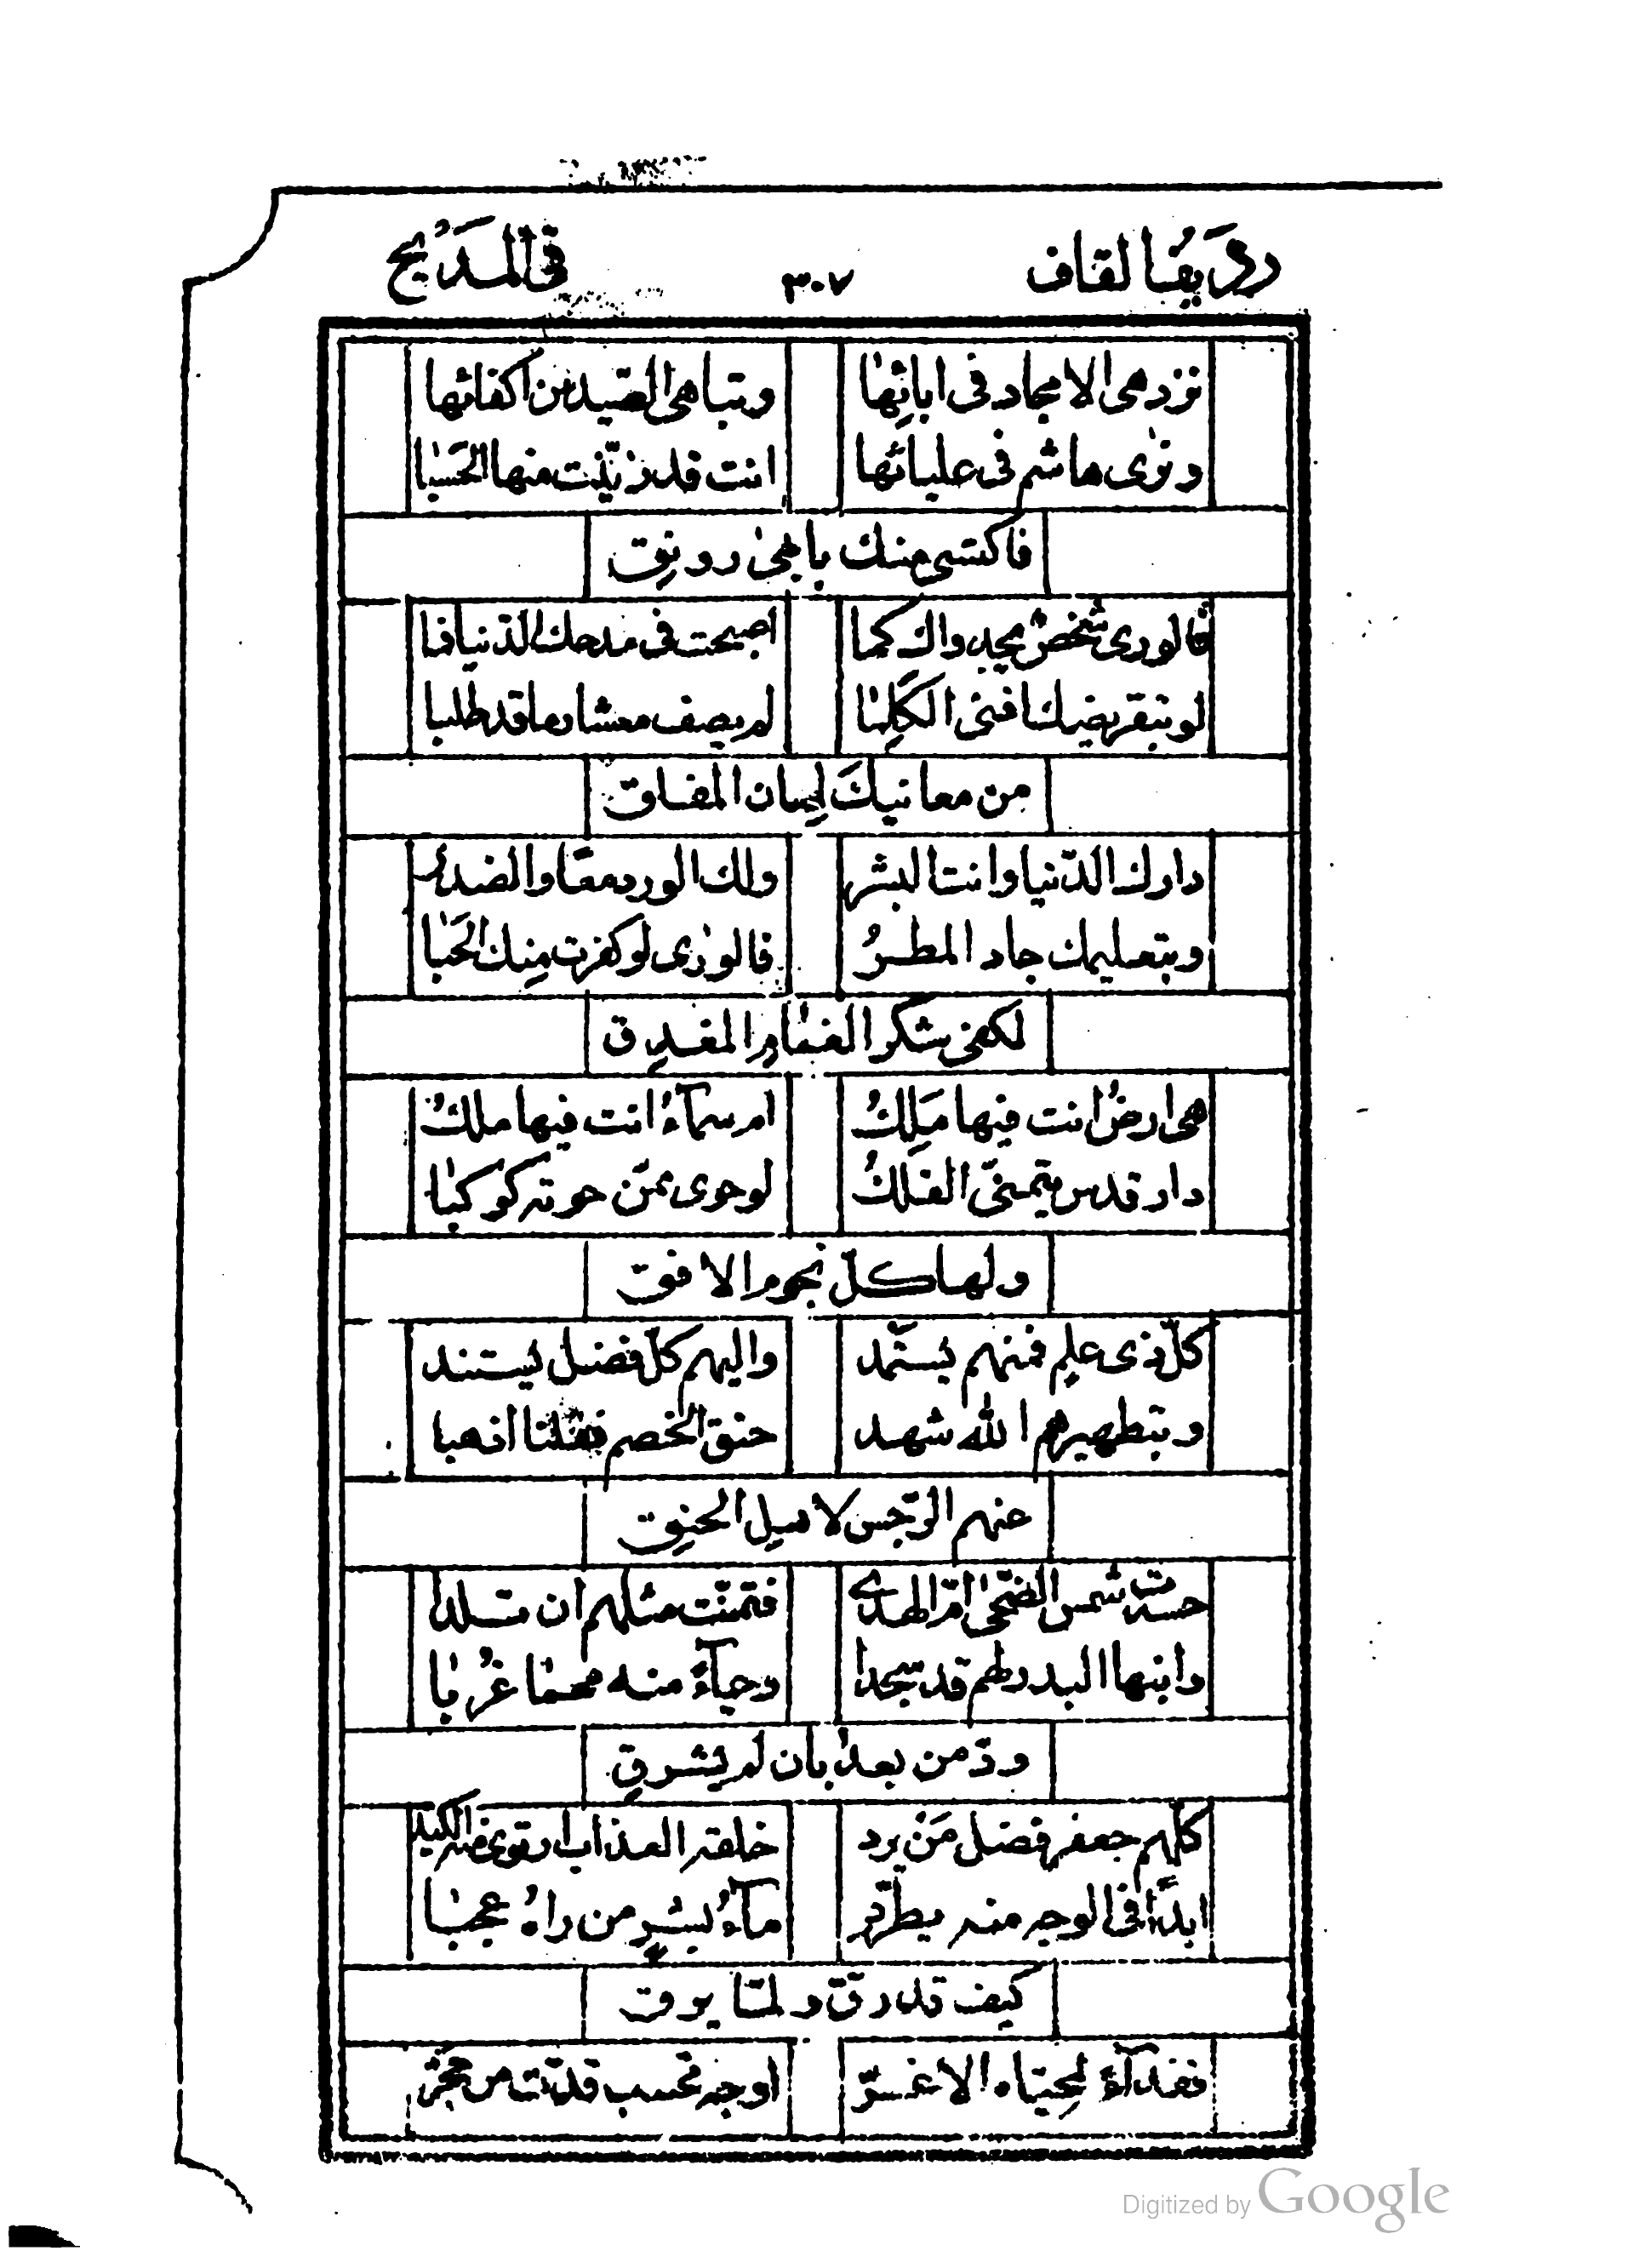 رديف القاف ٣٠٧ في المديح
تزدهى الامجاد فى ابائها وتباهى الصيد من اكفائها
وترى هاشم فى عليائها انت قد زيّنت منها الحسبا
فاكتسى منك بابهى رونق
فالورى شخص بجدواك كما اصبحت فى مدحك الدّنيا فما
لو بتقريضك افنى الكلما لم يصف معشار ما قد طلبا
من معانيك لسان المفلق
دارك الدّنيا وانت البشر ولك الورد معًا والصدر
وبتعليمك جاد المطرُ فالورى لو كفرت منك الحبا
لكفى شكر الغمام المغدق
هى ارضٌ انت فيها مَلِكُ ام سمآءُ انت فيها ملكُ
دار قدس يتمنّى الفلكُ لو حوى ممّن حوته كوكبا
ولها كلّ نجوم الافق
كلّ ذى علم فمنهم يستمّد واليهم كلّ فضل يستند
وبتطهيرهم الله شهد حنق الخصم فقلنا اذهبا
عنهم الرّجس لاهيل الحنق
حسدت شمس الضّحىٰ امّ الهدى فتمنّت مثلهم ان تلدا
وابنها البدر لهم قد سجدا وحيآءً منه مهما غربا
ودّ من بعد بان لم يشرق
كلّهم جعفر فضل مَنْ يرد خلقه العذب ارتوى منه الكبد
ابدًا فى الوجه منه يطّرد مآءُ بشرٍ من راهُ عجبا
كيف قد رقّ ولمّا يرق
ففدآءً لمحيّاه الاغرّ اوجه تحسب قدّت من حجر
Digitized by Google